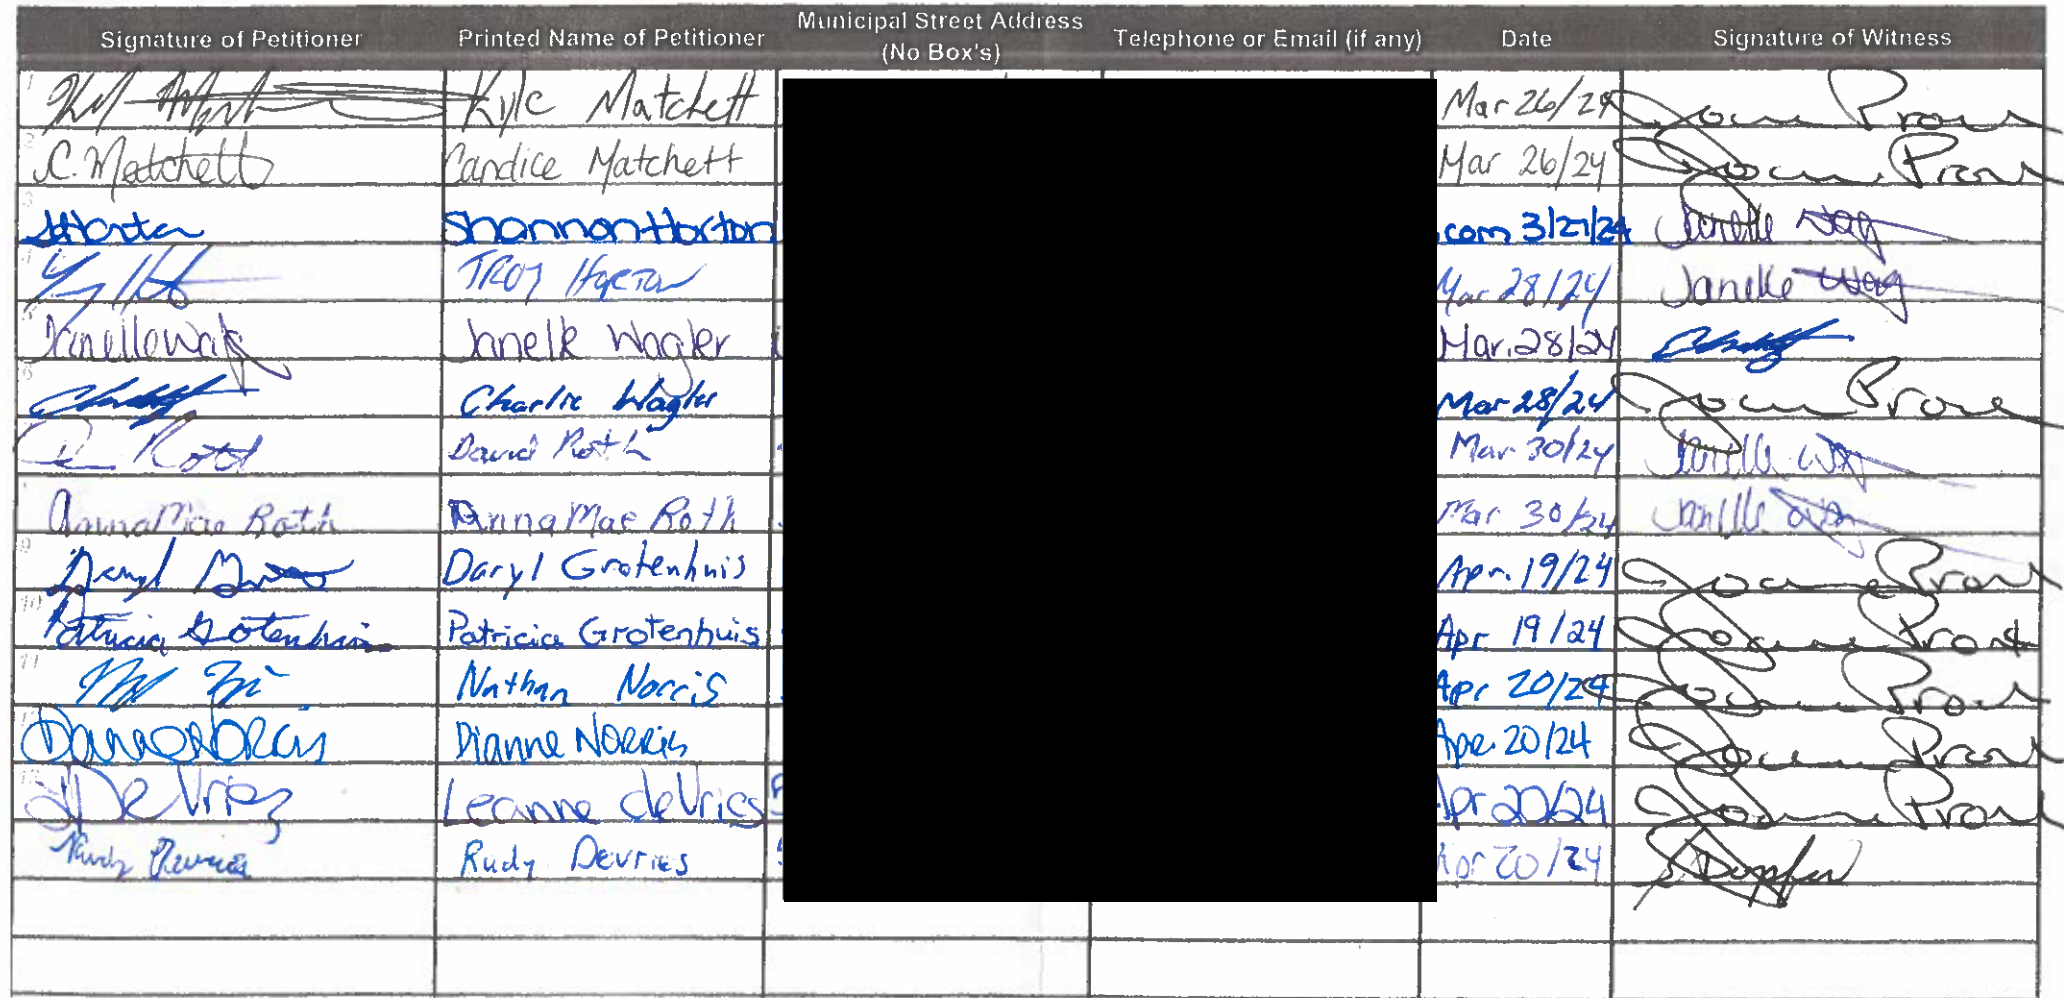 Signature of Petitioner Printed Name of Petitioner Municipal Street Address (No Box's) Telephone or Email (if any) Date Signature of Witness
1 Kyle Matchett Mar 26/24 Joanne Prou
2 C. Matchett Candice Matchett Mar 26/24 Joanne Prou
3 SHorton Shannon Horton .com 3/27/24 Janelle Wag
4 Troy Horton Mar 28/24 Janelle Wag
Janelle Wag Janelle Wagler Mar. 28/24
6 Charlie Wagler Mar 28/24 Joanne Prou
Roth David Roth Mar 30/24 Janelle Wag
AnnaMae Roth AnnaMae Roth Mar 30/24 Janelle
9 Daryl Daryl Grotenhuis Apr. 19/24 Joanne Prou
10 Patricia Grotenhuis Patricia Grotenhuis Apr 19/24 Joanne Prou
11 Nathan Norris Apr 20/24 Joanne Prou
Dianne Norris Dianne Norris Apr. 20/24 Joanne Prou
DeVries Leanne deVries Apr 20/24 Joanne Prou
Rudy Devries Rudy Devries Apr 20/24